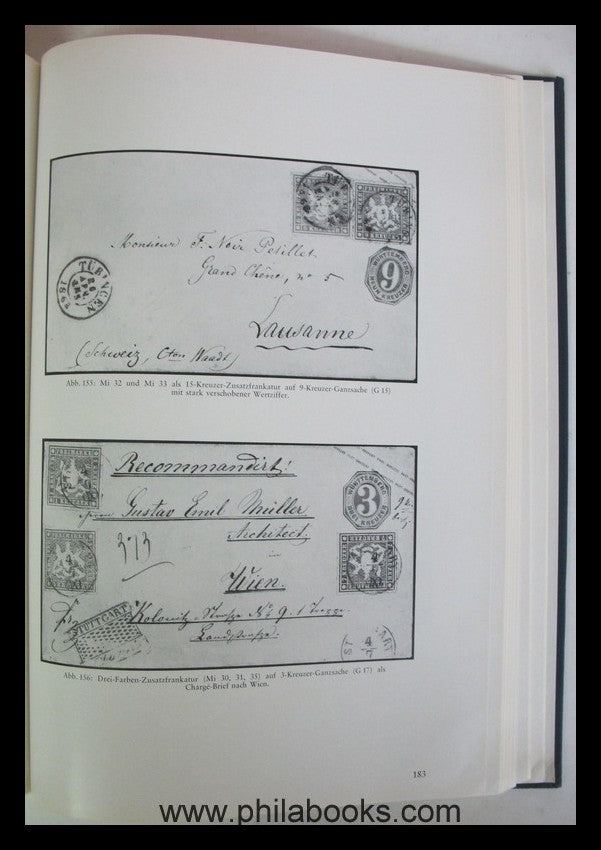 TÜBINGEN
WÜRTTEMBERG
9
NEUN KREUZER
Monsieur F. Noir Petillet
Grand Chêne, no 5
Lausanne
(Schweiz, Cton Waadt)
Abb. 155: Mi 32 und Mi 33 als 15-Kreuzer-Zusatzfrankatur auf 9-Kreuzer-Ganzsache (G 15)
mit stark verschobener Wertziffer.
FREIMARKE
Recommandirt!
WÜRTTEMBERG
3
DREI KREUZER
Gustav Emil Müller
Architect
in
Wien.
Kolonitz-Straße No 9. 1
Landstraße
STUTTGART
ST
4/7
Abb. 156: Drei-Farben-Zusatzfrankatur (Mi 30, 31, 35) auf 3-Kreuzer-Ganzsache (G 17) als
Chargé-Brief nach Wien.
183
www.philabooks.com